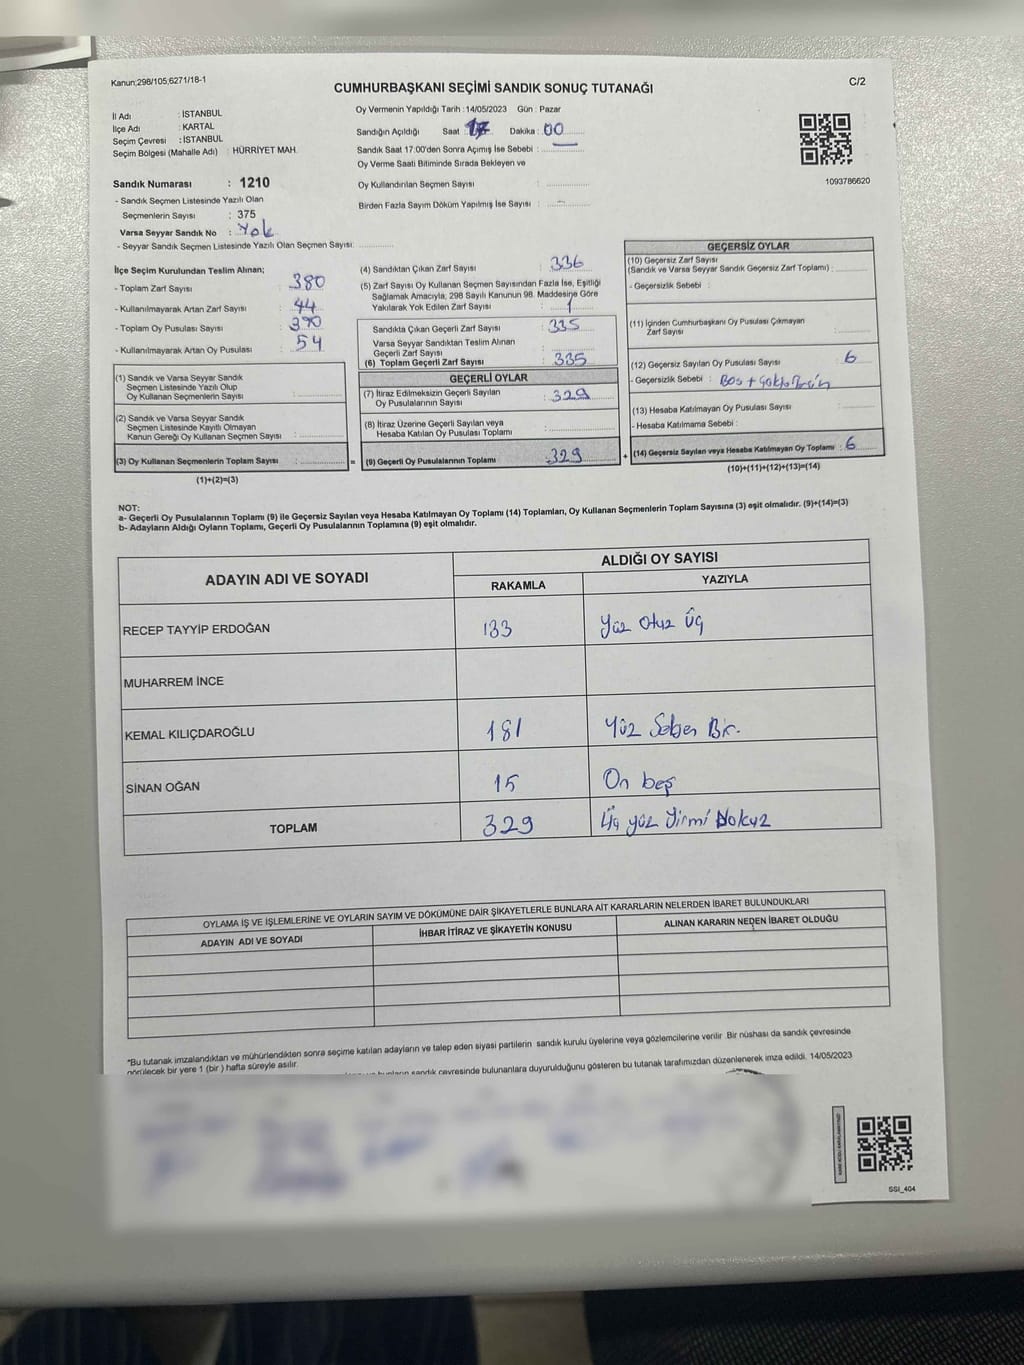 Kanun;298/105,6271/18-1
CUMHURBAŞKANI SEÇİMİ SANDIK SONUÇ TUTANAĞI
C/2
İl Adı : İSTANBUL
İlçe Adı : KARTAL
Seçim Çevresi : İSTANBUL
Seçim Bölgesi (Mahalle Adı) : HÜRRİYET MAH.
Oy Vermenin Yapıldığı Tarih : 14/05/2023 Gün : Pazar
Sandığın Açıldığı Saat : 17 Dakika : 00
Sandık Saat 17:00'den Sonra Açımış İse Sebebi :
Oy Verme Saati Bitiminde Sırada Bekleyen ve
Oy Kullandırılan Seçmen Sayısı :
Birden Fazla Sayım Döküm Yapılmış İse Sayısı : -
1093786620
Sandık Numarası : 1210
- Sandık Seçmen Listesinde Yazılı Olan
Seçmenlerin Sayısı : 375
Varsa Seyyar Sandık No : Yok
- Seyyar Sandık Seçmen Listesinde Yazılı Olan Seçmen Sayısı:
İlçe Seçim Kurulundan Teslim Alınan;
- Toplam Zarf Sayısı : 380
- Kullanılmayarak Artan Zarf Sayısı : 44
- Toplam Oy Pusulası Sayısı : 390
- Kullanılmayarak Artan Oy Pusulası : 54
(1) Sandık ve Varsa Seyyar Sandık
Seçmen Listesinde Yazılı Olup
Oy Kullanan Seçmenlerin Sayısı :
(2) Sandık ve Varsa Seyyar Sandık
Seçmen Listesinde Kayıtlı Olmayan
Kanun Gereği Oy Kullanan Seçmen Sayısı :
(3) Oy Kullanan Seçmenlerin Toplam Sayısı : =
(1)+(2)=(3)
(4) Sandıktan Çıkan Zarf Sayısı : 336
(5) Zarf Sayısı Oy Kullanan Seçmen Sayısından Fazla İse, Eşitliği
Sağlamak Amacıyla, 298 Sayılı Kanunun 98. Maddesine Göre
Yakılarak Yok Edilen Zarf Sayısı : 1
Sandıkta Çıkan Geçerli Zarf Sayısı : 335
Varsa Seyyar Sandıktan Teslim Alınan
Geçerli Zarf Sayısı :
(6) Toplam Geçerli Zarf Sayısı : 335
GEÇERLİ OYLAR
(7) İtiraz Edilmeksizin Geçerli Sayılan
Oy Pusulalarının Sayısı : 329
(8) İtiraz Üzerine Geçerli Sayılan veya
Hesaba Katılan Oy Pusulası Toplamı :
(9) Geçerli Oy Pusulalarının Toplamı : 329 +
GEÇERSİZ OYLAR
(10) Geçersiz Zarf Sayısı
(Sandık ve Varsa Seyyar Sandık Geçersiz Zarf Toplamı) :
- Geçersizlik Sebebi :
(11) İçinden Cumhurbaşkanı Oy Pusulası Çıkmayan
Zarf Sayısı :
(12) Geçersiz Sayılan Oy Pusulası Sayısı : 6
- Geçersizlik Sebebi : Boş +
(13) Hesaba Katılmayan Oy Pusulası Sayısı :
- Hesaba Katılmama Sebebi :
(14) Geçersiz Sayılan veya Hesaba Katılmayan Oy Toplamı : 6
(10)+(11)+(12)+(13)=(14)
NOT:
a- Geçerli Oy Pusulalarının Toplamı (9) ile Geçersiz Sayılan veya Hesaba Katılmayan Oy Toplamı (14) Toplamları, Oy Kullanan Seçmenlerin Toplam Sayısına (3) eşit olmalıdır. (9)+(14)=(3)
b- Adayların Aldığı Oyların Toplamı, Geçerli Oy Pusulalarının Toplamına (9) eşit olmalıdır.
ADAYIN ADI VE SOYADI
ALDIĞI OY SAYISI
RAKAMLA YAZIYLA
RECEP TAYYİP ERDOĞAN 133 Yüz Otuz Üç
MUHARREM İNCE
KEMAL KILIÇDAROĞLU 181 Yüz Seksen Bir.
SİNAN OĞAN 15 On beş
TOPLAM 329 Üç yüz Yirmi Dokuz
OYLAMA İŞ VE İŞLEMLERİNE VE OYLARIN SAYIM VE DÖKÜMÜNE DAİR ŞİKAYETLERLE BUNLARA AİT KARARLARIN NELERDEN İBARET BULUNDUKLARI
ADAYIN ADI VE SOYADI İHBAR İTİRAZ VE ŞİKAYETİN KONUSU ALINAN KARARIN NEDEN İBARET OLDUĞU
*Bu tutanak imzalandıktan ve mühürlendikten sonra seçime katılan adayların ve talep eden siyasi partilerin sandık kurulu üyelerine veya gözlemcilerine verilir .Bir nüshası da sandık çevresinde
görülecek bir yere 1 (bir ) hafta süreyle asılır.
bunların sandık çevresinde bulunanlara duyurulduğunu gösteren bu tutanak tarafımızdan düzenlenerek imza edildi. 14/05/2023
SSI_404